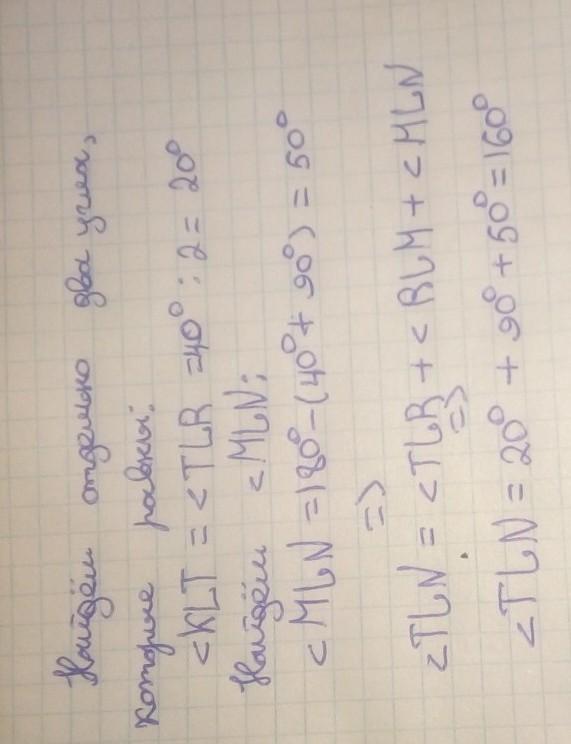 Найдём отдельно два угла,
которые равны:
<KLT = <TLR = 40° : 2 = 20°
Найдём <MLN:
<MLN = 180° - (40° + 90°) = 50°
=>
<TLN = <TLR + <RLM + <MLN
=>
<TLN = 20° + 90° + 50° = 160°